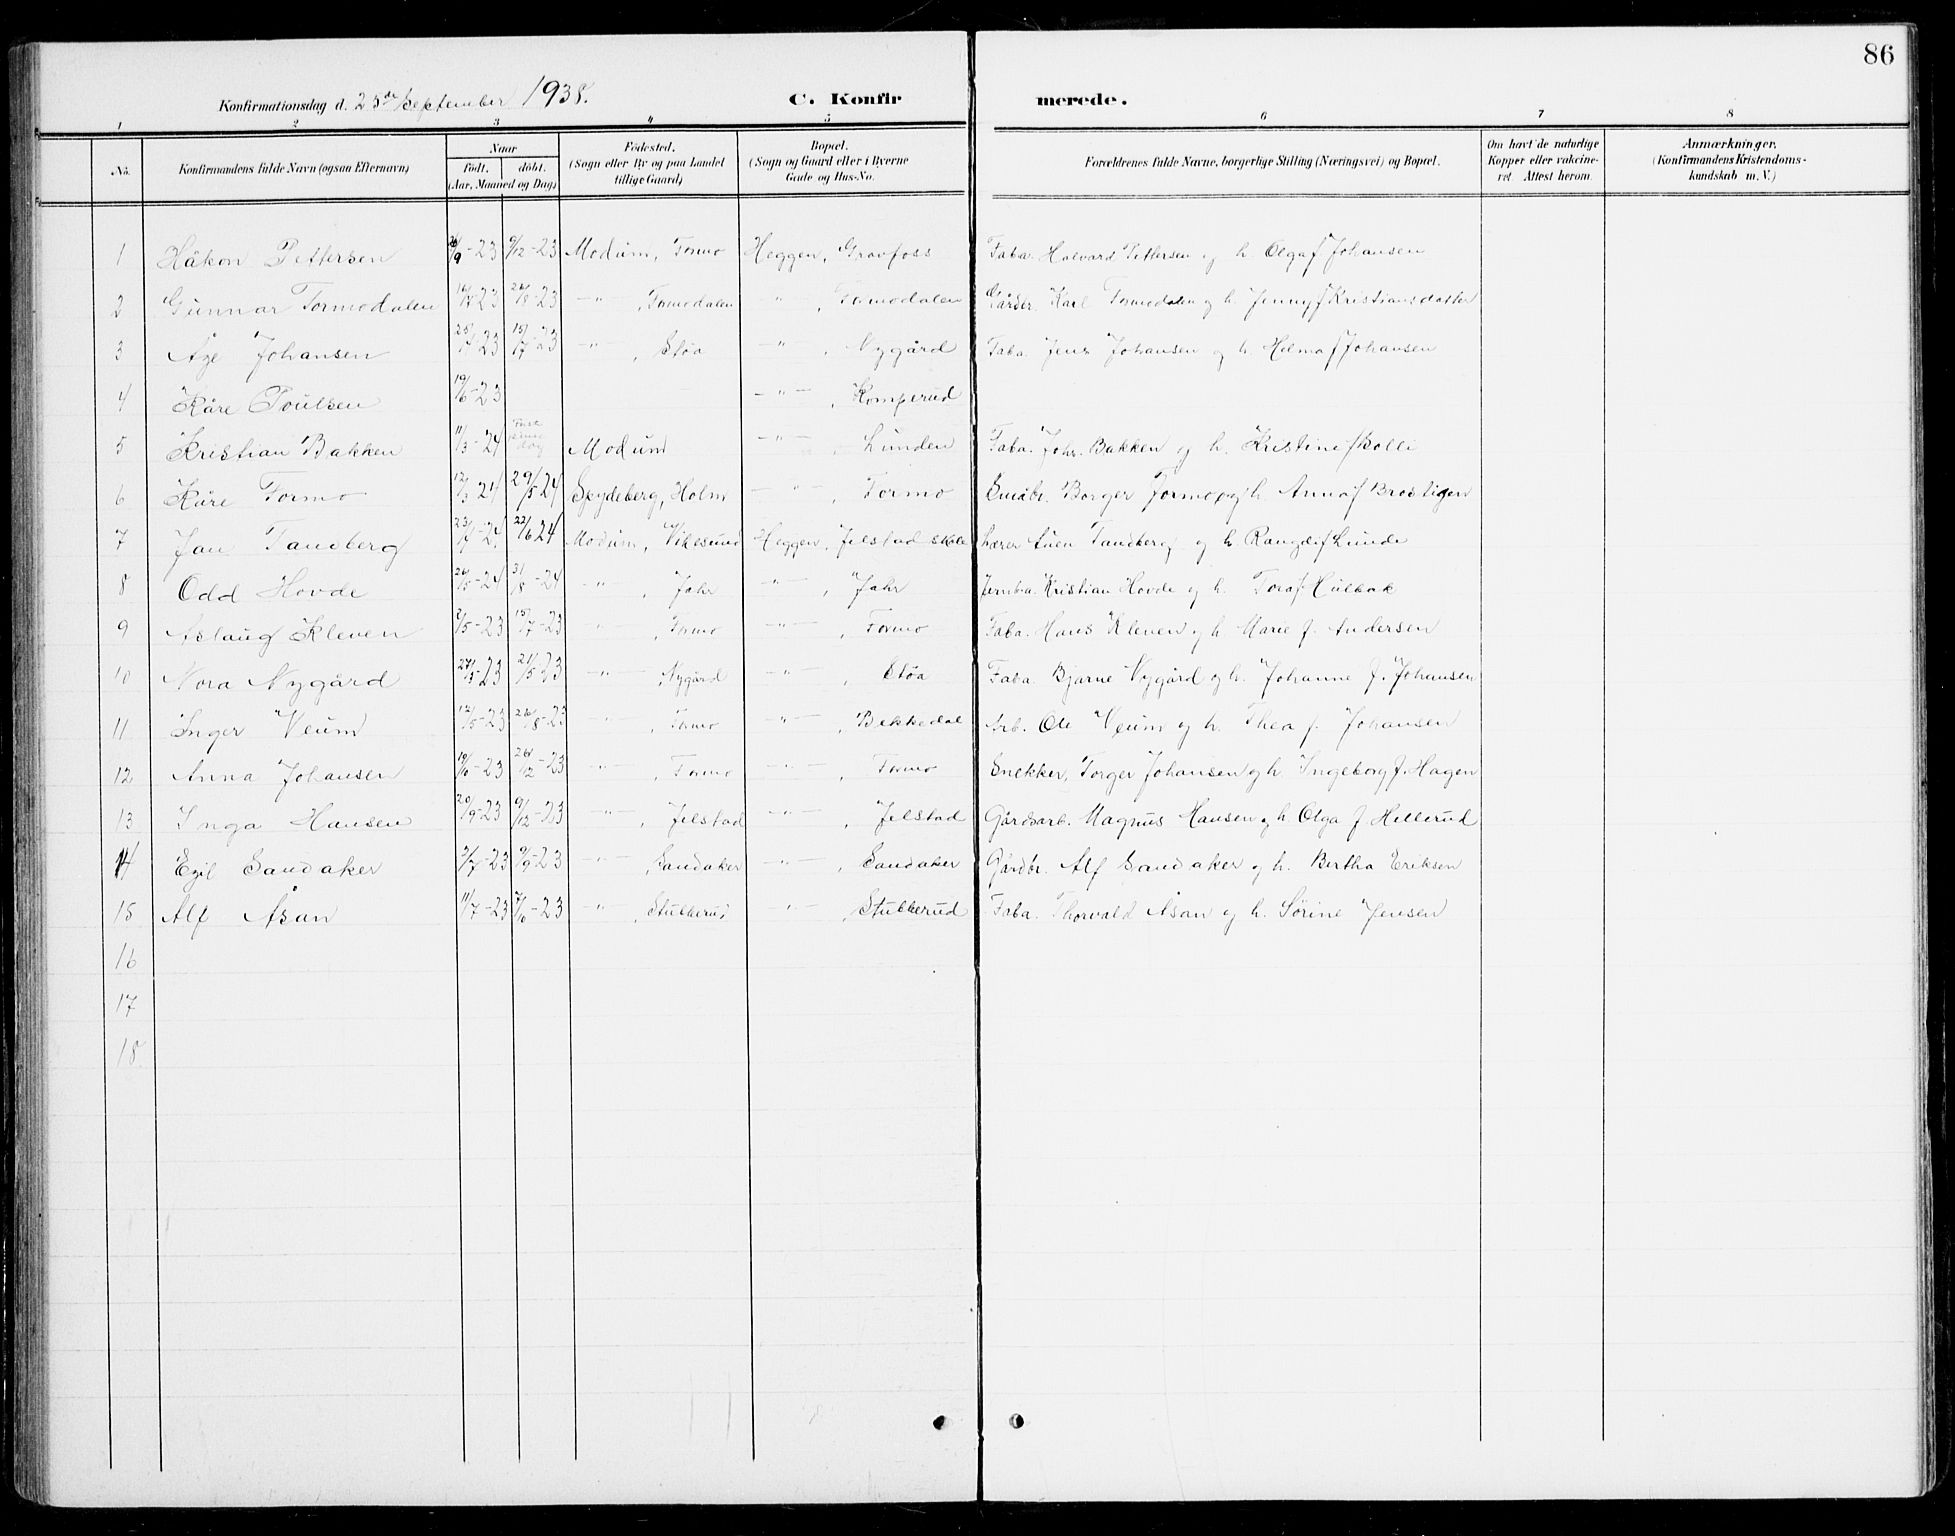 86
Konfirmationsdag d. 25de September 1938. C. Konfirmerede.
1 2 3 4 5 6 7 8
No. Konfirmandens fulde Navn (ogsaa Efternavn) Naar födt. döbt. (Aar, Maaned og Dag) Födested. (Sogn eller By og paa Landet tillige Gaard) Bopæl. (Sogn og Gaard eller i Byerne Gade og Hus-No. Forældrenes fulde Navne, borgerlige Stilling (Næringsvei) og Bopæl. Om havt de naturlige Kopper eller vakcineret. Attest herom. Anmærkninger, (Konfirmandens Kristendomskundskab m. V.)
1 Håkon Pettersen 26/9-23 9/12-23 Modum, Formo Heggen, Gravfoss Faba. Halvard Pettersen og h. Olga f Johansen
2 Gunnar Formodalen -23 26/8-23 -"- , Formodalen " , Formodalen Gårdbr. Karl Formodalen og h. Jenny f Kristiansdatter
3 Åge Johansen 23 15/7-23 -"- , Støa -"- , Nygård Faba. Jens Johansen og h. Hilma f Johansen
4 Kåre Poulsen 19/6-23 -"- , Komperud
5 Kristian Bakken 11/3-24 Modum -"- , Lunden Faba. Johs. Bakken og h. Kristine f Bolli
6 Kåre Formo 12/3 24 29/5 24 Spydeberg, Holm -"- , Formo Småbr. Borger Formo og h. Anna f Brostigen
7 Jan Tandberg 23/-24 22/6 24 Modum, Vikesund Heggen, Jelstad skole Lærer Even Tandberg og h. Rangdi f Lunde
8 Odd Hovde 26/5-24 31/8-24 -"- , Jahr -"- , Jahr Jernba. Kristian Hovde og h. Tora f. Hulbak
9 Aslaug Kleven 2/5-23 15/7-23 -"- , Formo -"- , Formo Faba. Hans Kleven og h. Marie f. Andersen
10 Nora Nygård 27/3-23 21/5-23 -"- , Nygård -"- , Støa Faba. Bjarne Nygård og h. Johanne f. Johansen
11 Inger Veum 12/5-23 26/8-23 -"- , Formo -"- , Bekkedal Arb. Ole Veum og h. Thea f. Johansen
12 Anna Johansen 19/10-23 26/12-23 -"- , Formo -"- , Formo Snekker, Torger Johansen og h. Ingeborg f. Hagen
13 Inga Hansen 20/9-23 9/12-23 -"- , Jelstad -"- , Jelstad Gårdsarb. Magnus Hansen og h. Olga f Hellerud
14 Egil Sandaker 3/7-23 9/9-23 -"- , Sandaker -"- , Sandaker Gårdbr. Alf Sandaker og h. Bertha Eriksen
15 Alf Åsan 11/7-23 7/10-23 -"- , Stubberud -"- , Stubberud Faba. Thorvald Åsan og h. Sørine Jensen
16
17
18.